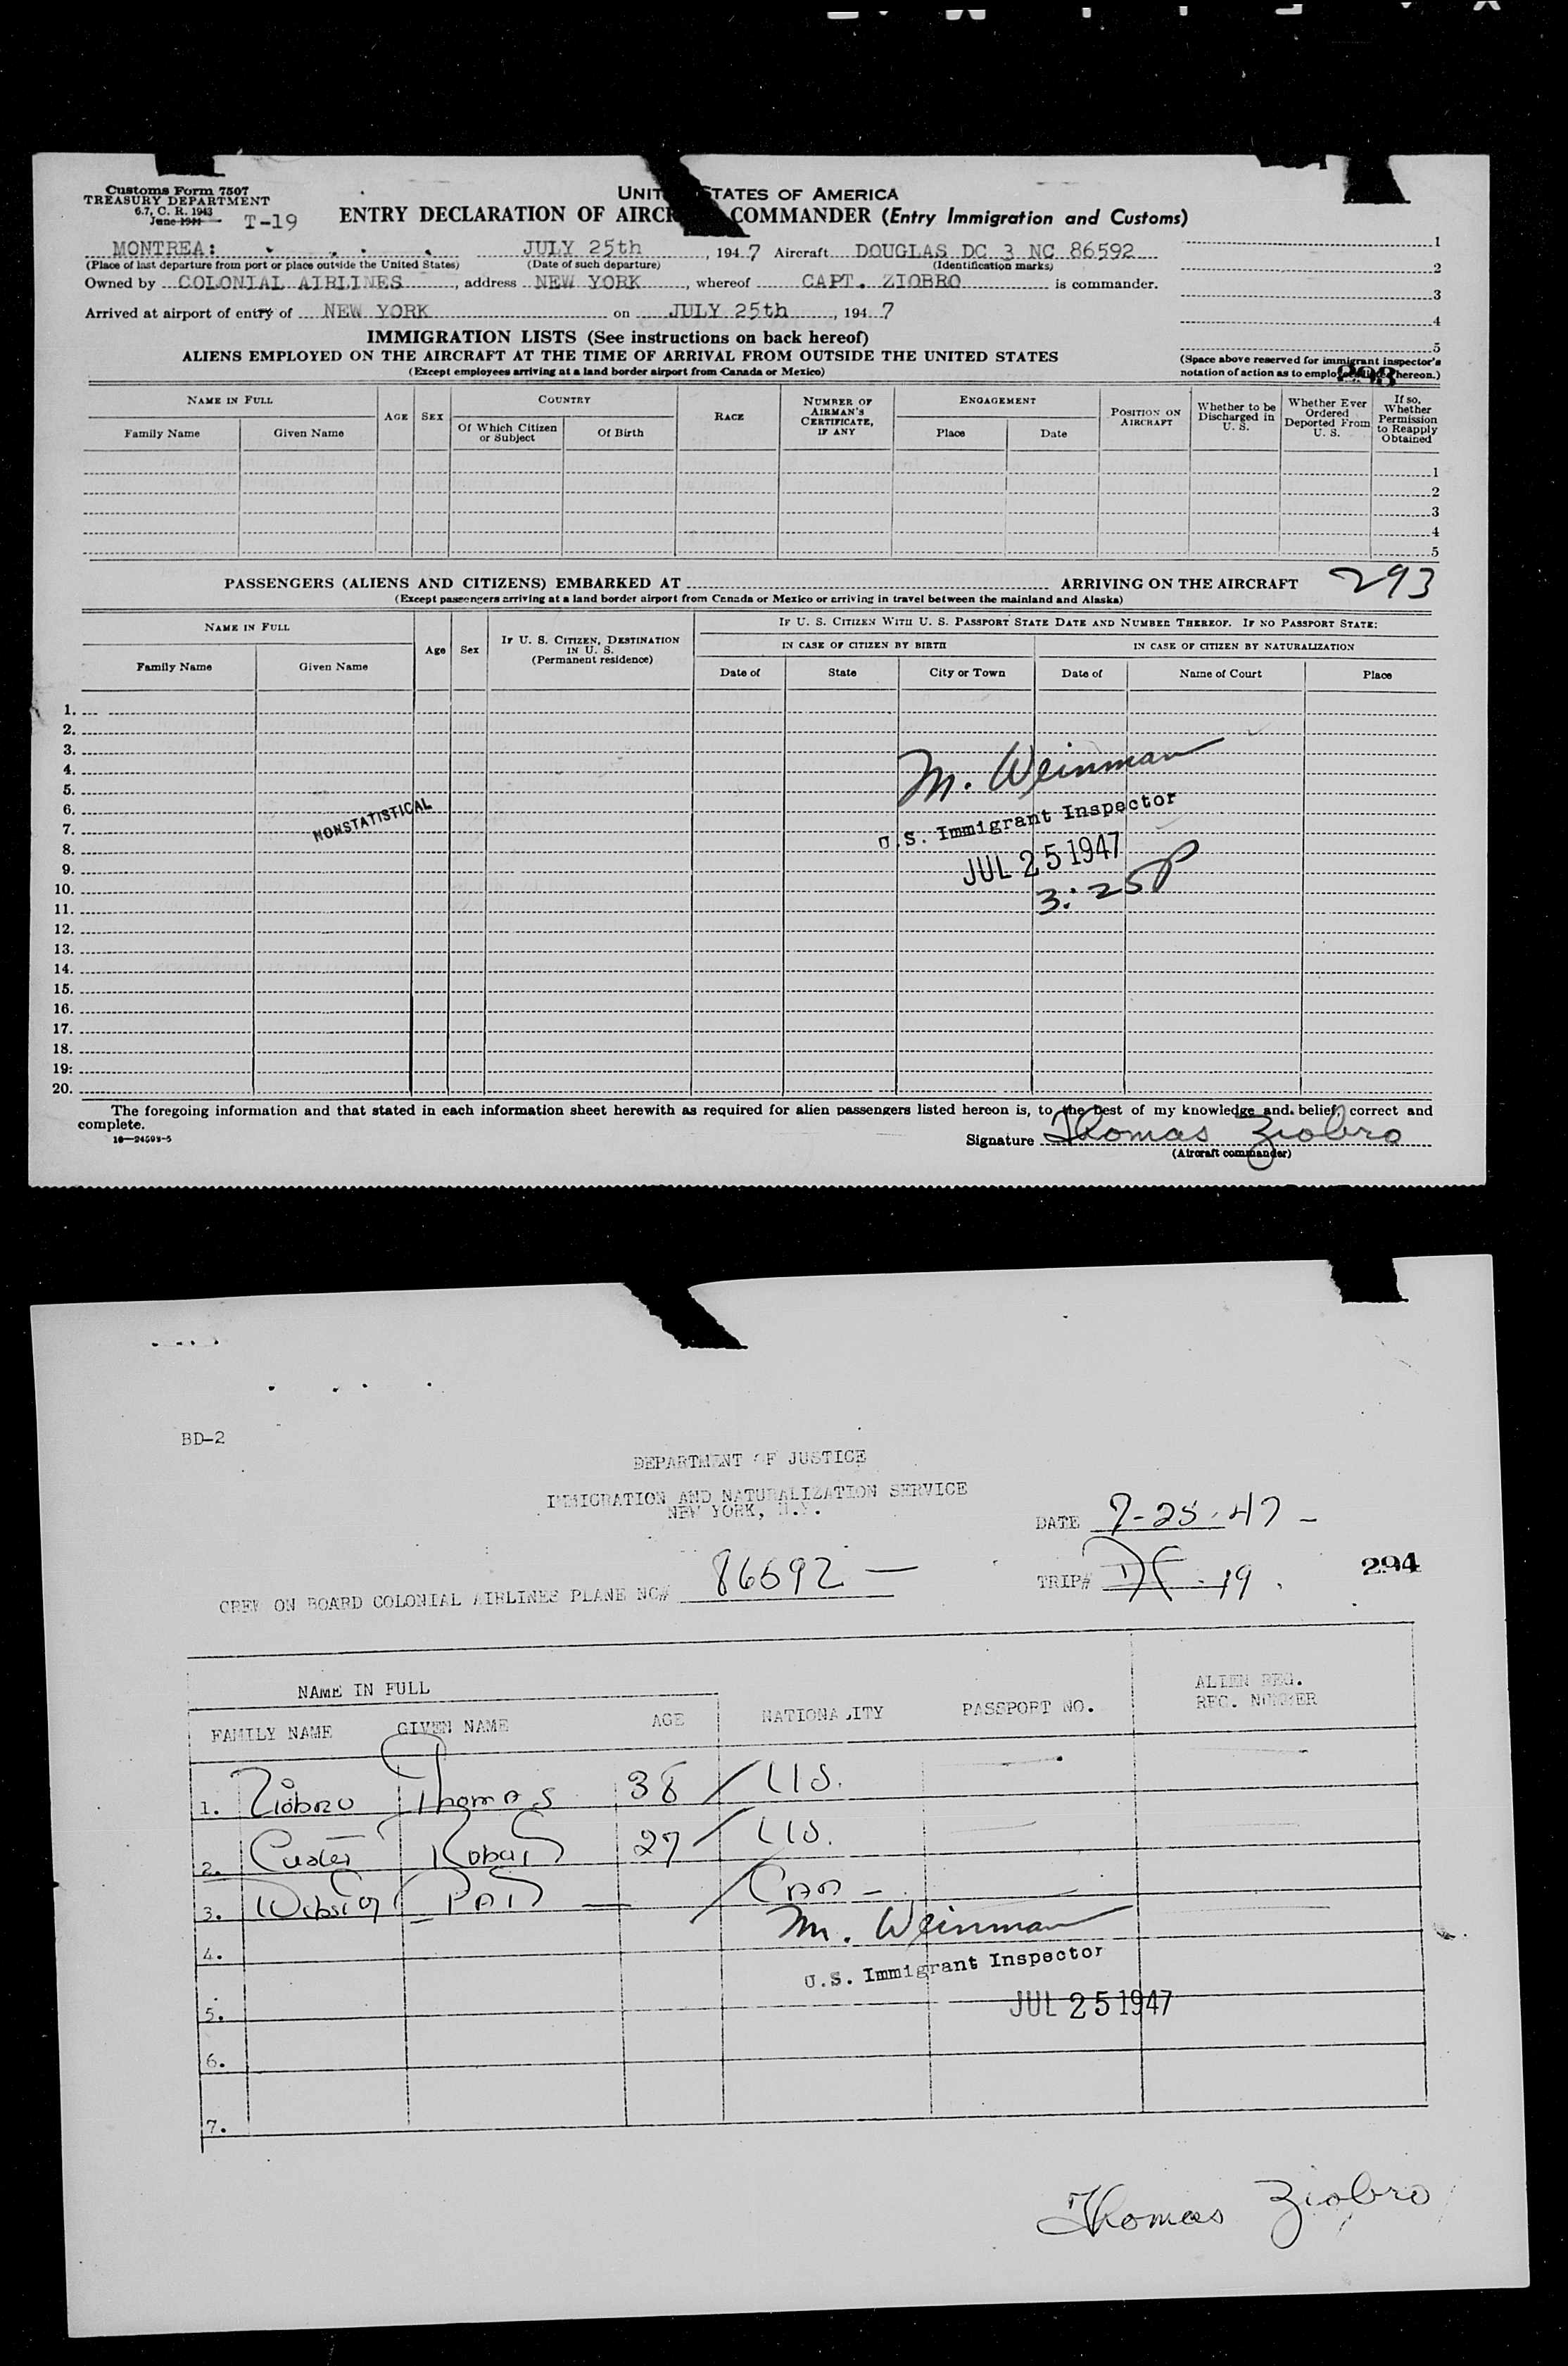 Customs Form 7507
TREASURY DEPARTMENT
6.7, C. R. 1943
June 1941 T-19
UNIT STATES OF AMERICA
ENTRY DECLARATION OF AIRCR COMMANDER (Entry Immigration and Customs)
MONTREA: JULY 25th, 1947 Aircraft DOUGLAS DC 3 NC 86592
(Place of last departure from port or place outside the United States) (Date of such departure) (Identification marks)
Owned by COLONIAL AIRLINES, address NEW YORK, whereof CAPT. ZIOBRO is commander.
Arrived at airport of entry of NEW YORK on JULY 25th, 1947
1
2
3
4
5
IMMIGRATION LISTS (See instructions on back hereof)
ALIENS EMPLOYED ON THE AIRCRAFT AT THE TIME OF ARRIVAL FROM OUTSIDE THE UNITED STATES
(Except employees arriving at a land border airport from Canada or Mexico)
(Space above reserved for immigrant inspector's
notation of action as to employees listed hereon.)
293
NAME IN FULL
Family Name Given Name
AGE SEX
COUNTRY
Of Which Citizen or Subject Of Birth
RACE
NUMBER OF AIRMAN'S CERTIFICATE, IF ANY
ENGAGEMENT
Place Date
POSITION ON AIRCRAFT
Whether to be Discharged in U. S.
Whether Ever Ordered Deported From U. S.
If so, Whether Permission to Reapply Obtained
1
2
3
4
5
PASSENGERS (ALIENS AND CITIZENS) EMBARKED AT ARRIVING ON THE AIRCRAFT 293
(Except passengers arriving at a land border airport from Canada or Mexico or arriving in travel between the mainland and Alaska)
NAME IN FULL
Family Name Given Name
Age Sex
IF U. S. CITIZEN, DESTINATION IN U. S. (Permanent residence)
IF U. S. CITIZEN WITH U. S. PASSPORT STATE DATE AND NUMBER THEREOF. IF NO PASSPORT STATE:
IN CASE OF CITIZEN BY BIRTH IN CASE OF CITIZEN BY NATURALIZATION
Date of State City or Town Date of Name of Court Place
1.
2.
3.
4. M. Weinman
5.
6. NONSTATISTICAL
7. U.S. Immigrant Inspector
8.
9. JUL 25 1947
10. 3:25P
11.
12.
13.
14.
15.
16.
17.
18.
19.
20.
The foregoing information and that stated in each information sheet herewith as required for alien passengers listed hereon is, to the best of my knowledge and belief, correct and
complete.
16—24598-5
Signature Thomas Ziobro
(Aircraft commander)
BD-2
DEPARTMENT OF JUSTICE
IMMIGRATION AND NATURALIZATION SERVICE
NEW YORK, N.Y.
DATE 7-25-47
CREW ON BOARD COLONIAL AIRLINES PLANE NC# 86592
TRIP# 19
294
NAME IN FULL
FAMILY NAME GIVEN NAME AGE NATIONALITY PASSPORT NO. ALIEN REG. REC. NUMBER
1. Ziobro Thomas 38 U.S.
2. Custer Robert 27 U.S.
3. Webster PAT Can
M. Weinman
4.
U.S. Immigrant Inspector
5. JUL 25 1947
6.
7.
Thomas Ziobro